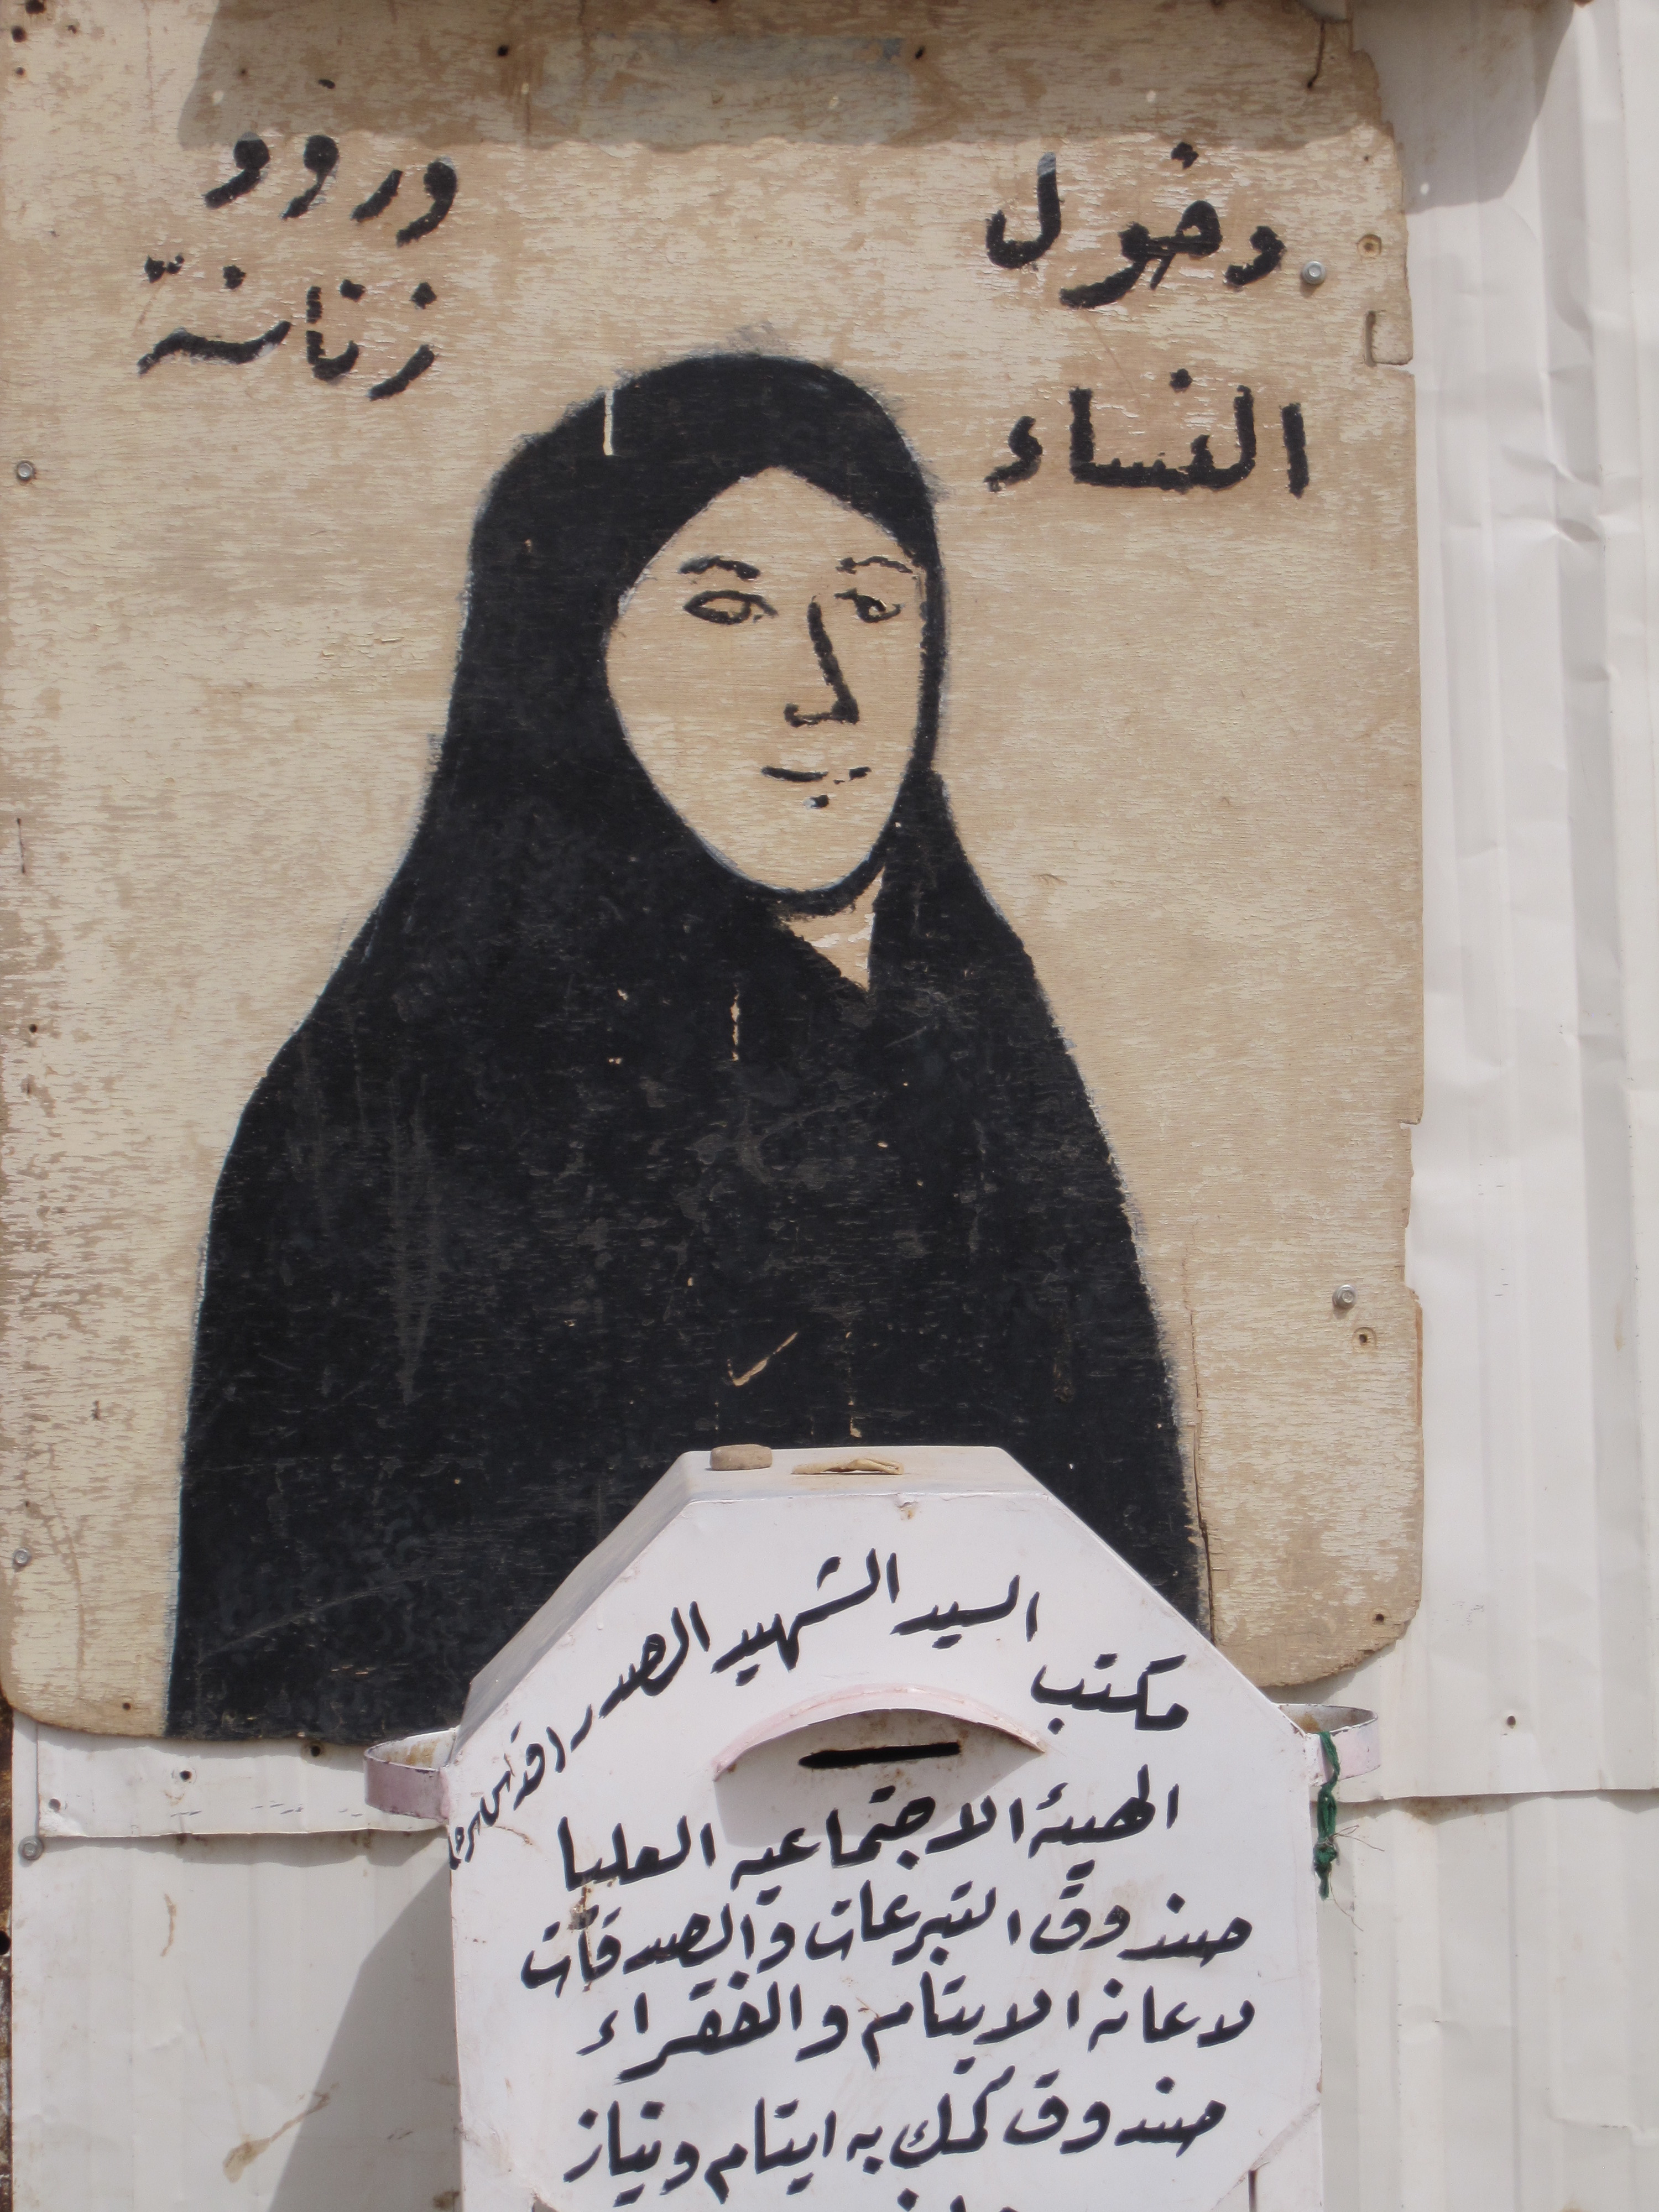 دخول
النساء
ورود
زنانة
مكتب السيد الشهيد الصدر (قدس سره)
الهيئة الاجتماعية العليا
صندوق التبرعات والصدقات
لاعانة الايتام والفقراء
صندوق كمك به ايتام ونياز